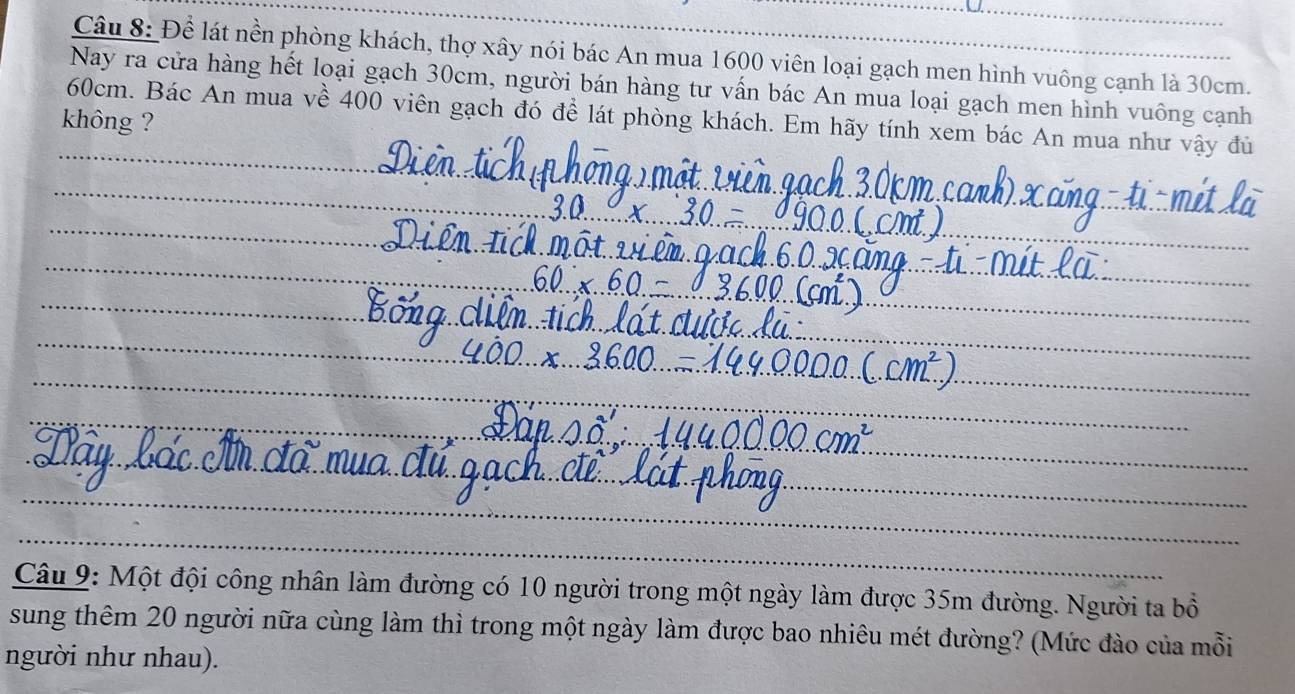 Câu 8: Để lát nền phòng khách, thợ xây nói bác An mua 1600 viên loại gạch men hình vuông cạnh là 30cm.
Nay ra cửa hàng hết loại gạch 30cm, người bán hàng tư vấn bác An mua loại gạch men hình vuông cạnh
60cm. Bác An mua về 400 viên gạch đó để lát phòng khách. Em hãy tính xem bác An mua như vậy đủ
không ?
Diện tích (phòng) một viên gạch 30(cm cạnh) xăng-ti-mét là
30 x 30 = 900 (cm²)
Diện tích một viên gạch 60 xăng-ti-mét là:
60 x 60 = 3600 (cm²)
diện tích lát được là:
400 x 3600 = 1440000 (cm²)
Đáp số: 1440000 cm²
bác An đã mua đủ gạch để lát phòng
Câu 9: Một đội công nhân làm đường có 10 người trong một ngày làm được 35m đường. Người ta bổ
sung thêm 20 người nữa cùng làm thì trong một ngày làm được bao nhiêu mét đường? (Mức đào của mỗi
người như nhau).